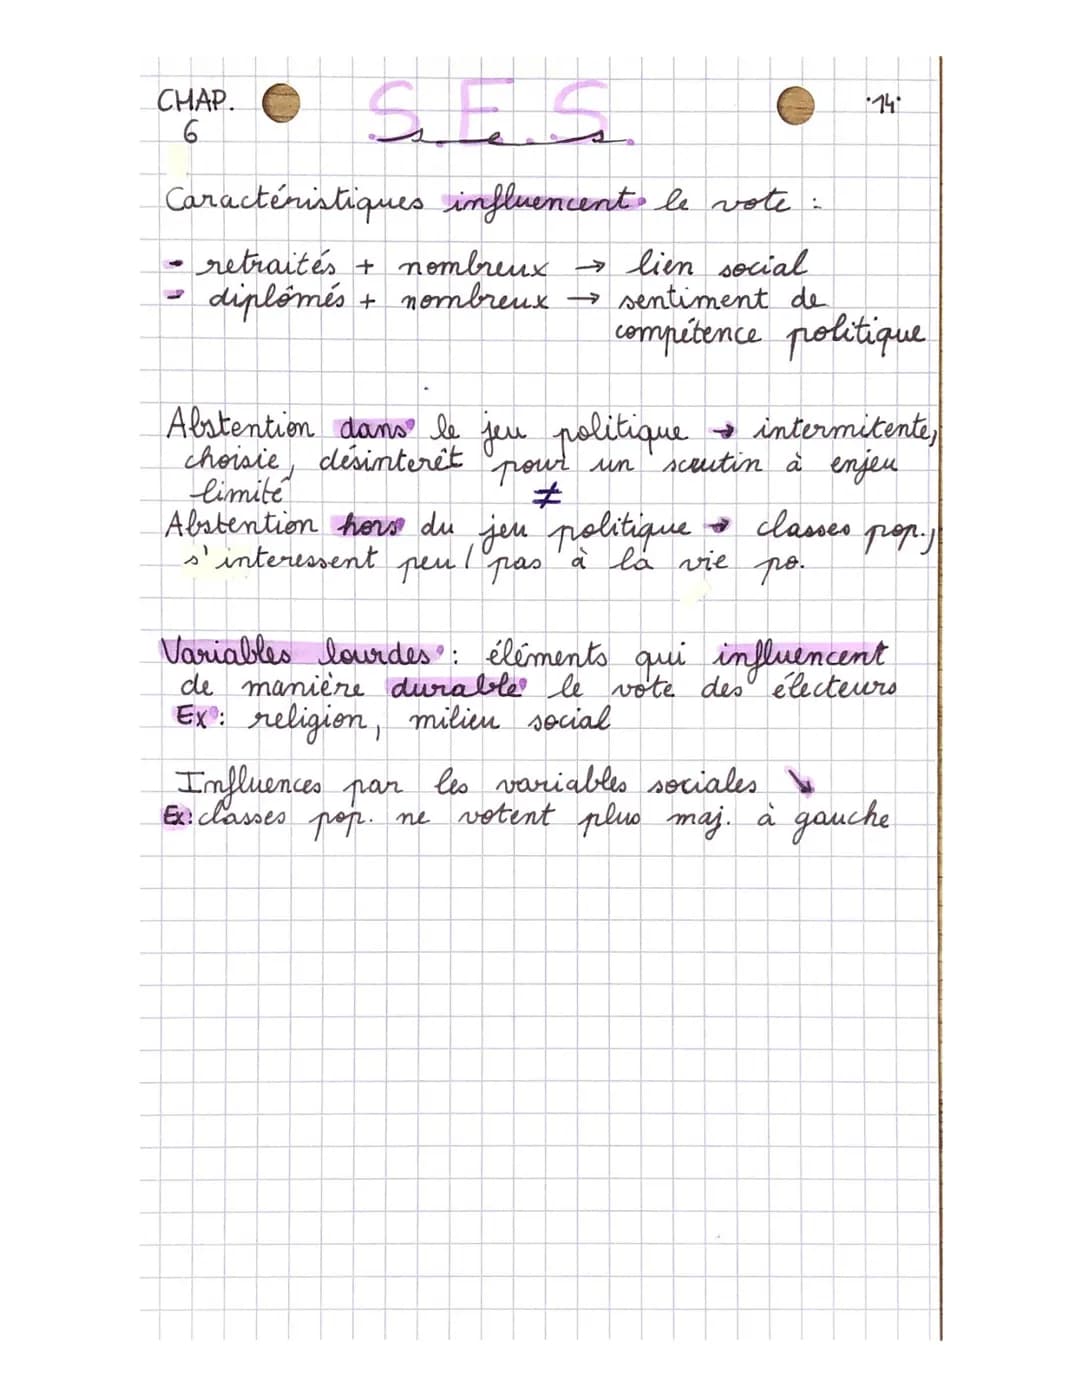 CHAP. 6
S.E.S.
s. e. s.
·14·
Caractéristiques influencent le vote :
- retraités + nombreux → lien social
- diplômés + nombreux → sentiment de
compétence politique
Abstention dans le jeu politique → intermitente,
choisie, désinterêt pour un scrutin à enjeu
limité
≠
Abstention hors du jeu politique → classes pop.,
s'interessent peu / pas à la vie po.
Variables lourdes : éléments qui influencent
de manière durable le vote des électeurs
Ex : religion, milieu social
Influences par les variables sociales ↘
Ex : classes pop. ne votent plus maj. à gauche